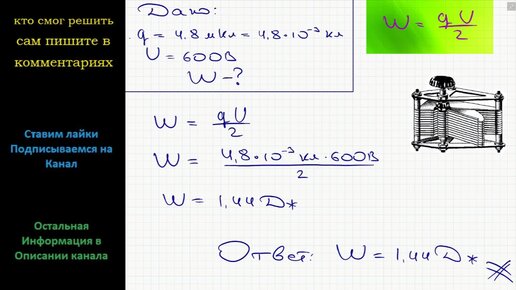 кто смог решить
сам пишите в
комментариях
Ставим лайки
Подписываемся на
Канал
Остальная
Информация в
Описании канала
Дано:
q = 4,8 мкл = 4,8·10⁻³ кл
U = 600В
W - ?
W = qU/2
W = qU/2
W = 4,8·10⁻³ кл·600В/2
W = 1,44 Дж
Ответ: W = 1,44 Дж